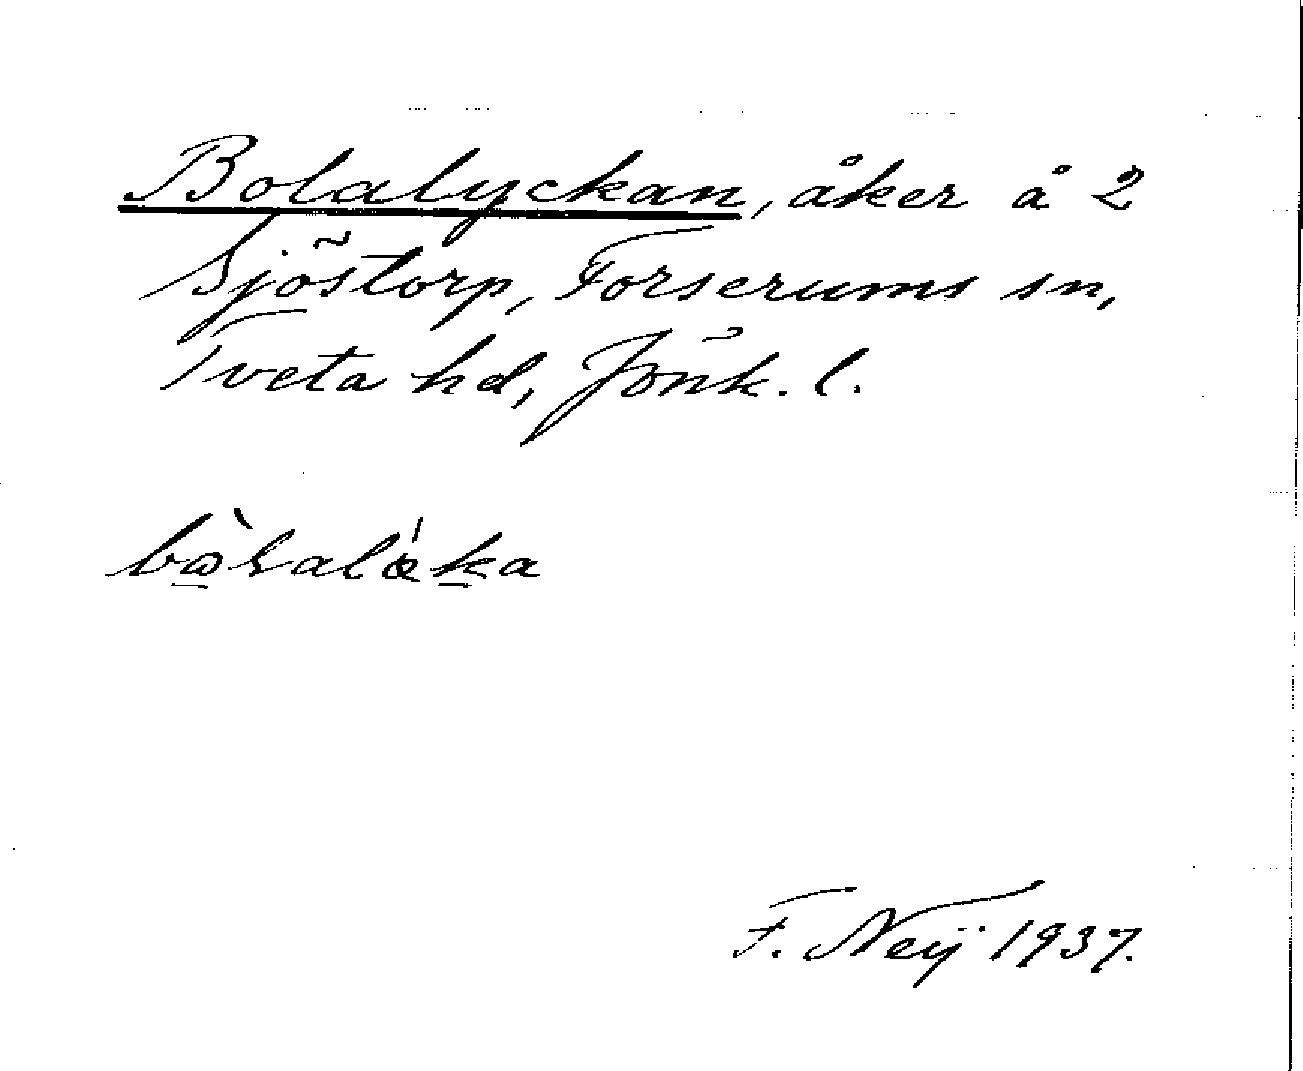 Bolalyckan, åker å 2
Sjöstorp, Forserums sn,
Tveta hd, Jönk. l.
F. Neij 1937.